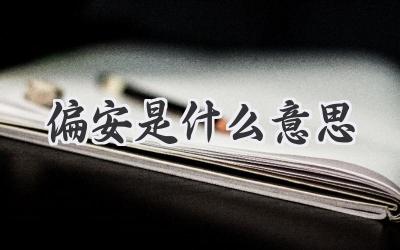 偏安是什么意思